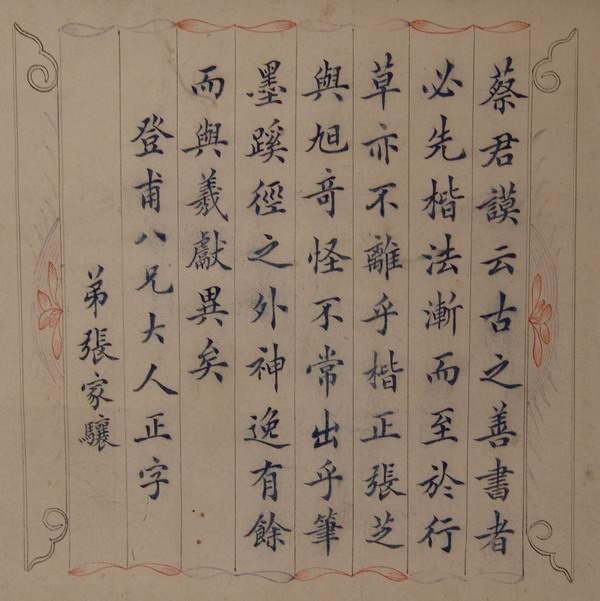 蔡君謨云古之善書者
必先楷法漸而至於行
草亦不離乎楷正張芝
與旭竒怪不常出乎筆
墨蹊徑之外神逸有餘
而與羲獻異矣
登甫八兄大人正字
弟張家驤